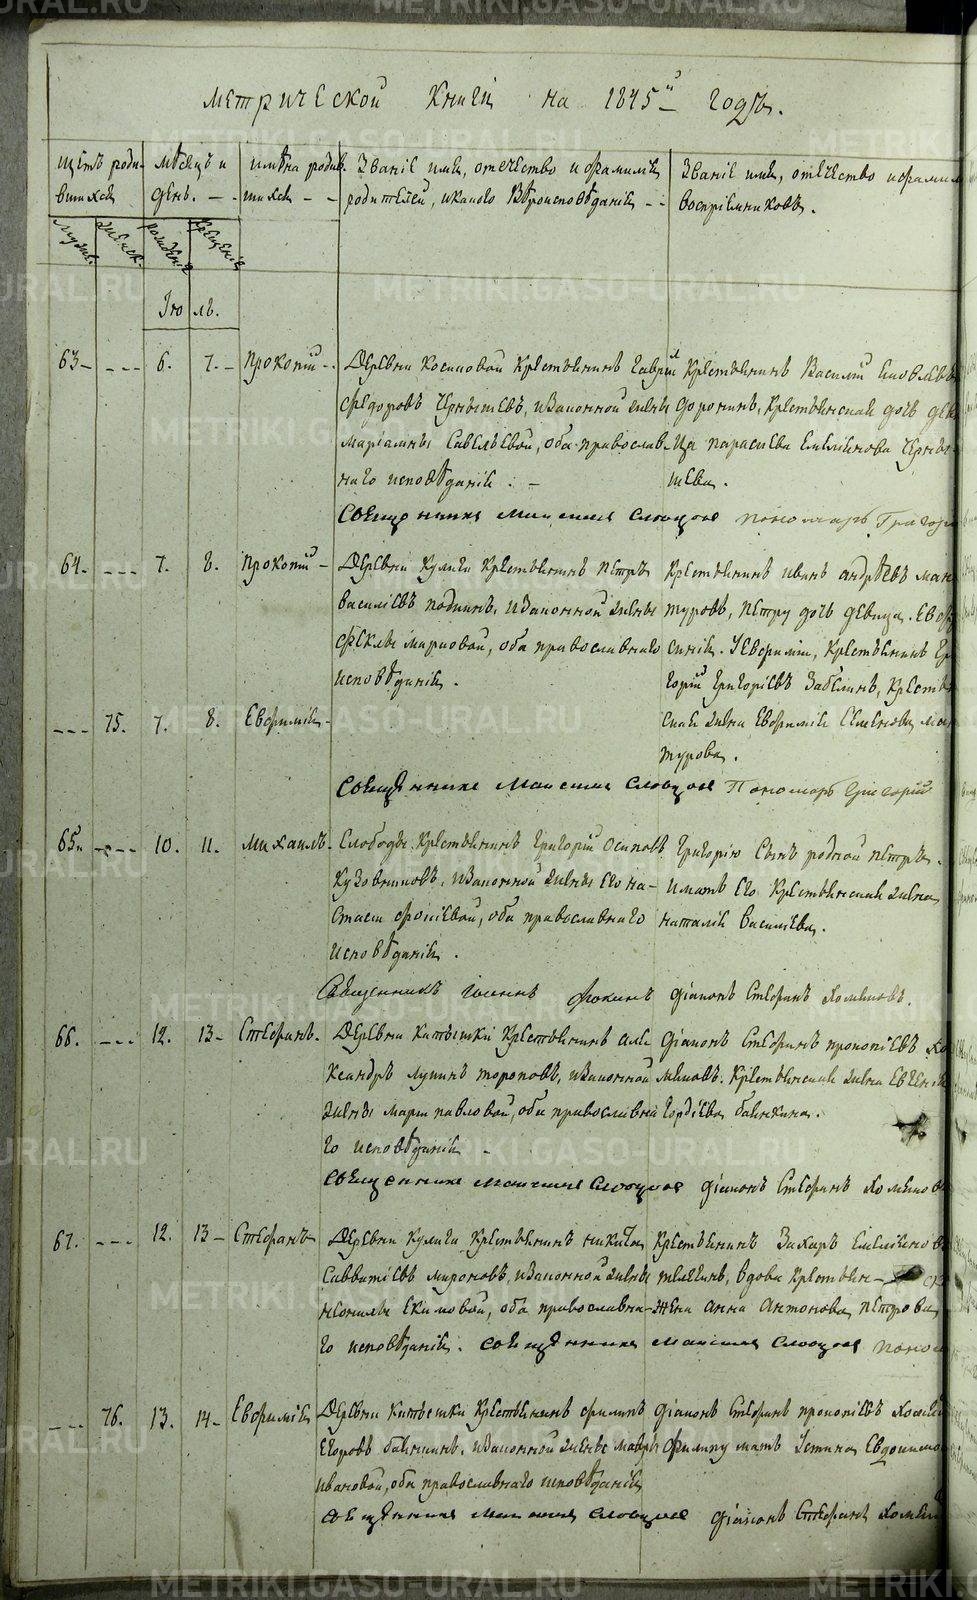 метрической книги на 1845й годъ.
щетъ роди-
вшихся
мѣсяцъ и
день.
имѣна родив-
шихся
Званіе имя, отечество и фамилія
родителей, и какого вѣроисповѣданія
Званіе имя, отечество и фамил
воспріемниковъ.
мужес. женск. рожденія крещенія
Іюль.
63 6. 7. Прокопій
Деревни Косиковой крестьянинъ Гаврiилъ
Федоровъ Чернышевъ, и законной жены
Маріамны Савельевой, оба православ-
наго исповѣданія.
Крестьянинъ Василій
Доронинъ, крестьянская дочь дев
ца Параскева Емелiянова Черны-
шева.
Священникъ Словцовъ пономарь Григор
64. 7. 8. Прокопій
Деревни Кулиги крестьянинъ Петръ
Василіевъ и законной жены
Феклы Марковой, оба православнаго
исповѣданія.
75. 7. 8. Евфимія
Крестьянинъ Иванъ Андрѣевъ Ман
туровъ, Петру дочь девица Евфро
синія. У Евфиміи, крестьянинъ Гри
горій Григоріевъ Забелинъ, крестьян
ская жена Евфимія Семенова Ман
турова.
Священникъ Словцовъ Пономарь Григорій
65. 10. 11. Михаилъ
Слободы крестьянинъ Григорій Осиповъ
Кузовниковъ, и законной жены его На-
стасьи Фокіевой, оба православнаго
исповѣданія.
Григорію сынъ родной Петръ.
и мать его крестьянская жена
Наталія Василіева.
Священникъ Іоаннъ Фокинъ діаконъ Стефанъ Хомяковъ.
66. 12. 13 Стефанъ.
Деревни крестьянинъ Але
ксандръ Лукинъ Тороповъ, и законной
жены Марьи Павловой, оба православна
го исповѣданія
Діаконъ Стефанъ Прокопіевъ Хо
мяковъ. Крестьянская жена Евгенія
Гордіева
Священникъ Словцовъ діаконъ Стефанъ Хомяковъ
67. 12. 13 Стефанъ
Деревни Кулиги крестьянинъ Никита
Савватіевъ Мироновъ, и законной жены
Неонилы Екимовой, оба православна-
го исповѣданія.
Крестьянинъ Захаръ Емеліяновъ
Телегинъ, вдова крестьян- ск
жена Анна Антонова Петрова
Священникъ Словцовъ поном
76. 13. 14 Евфимія
Деревни крестьянинъ Филиппъ
Егоровъ и законной жены Марьи
Ивановой, оба православнаго исповѣданія
Діаконъ Стефанъ Прокопіевъ Хомяков
Филиппу мать Устина Евдокимова
Священникъ Словцовъ діаконъ Стефанъ Хомяков
METRIKI.GASO-URAL.RU